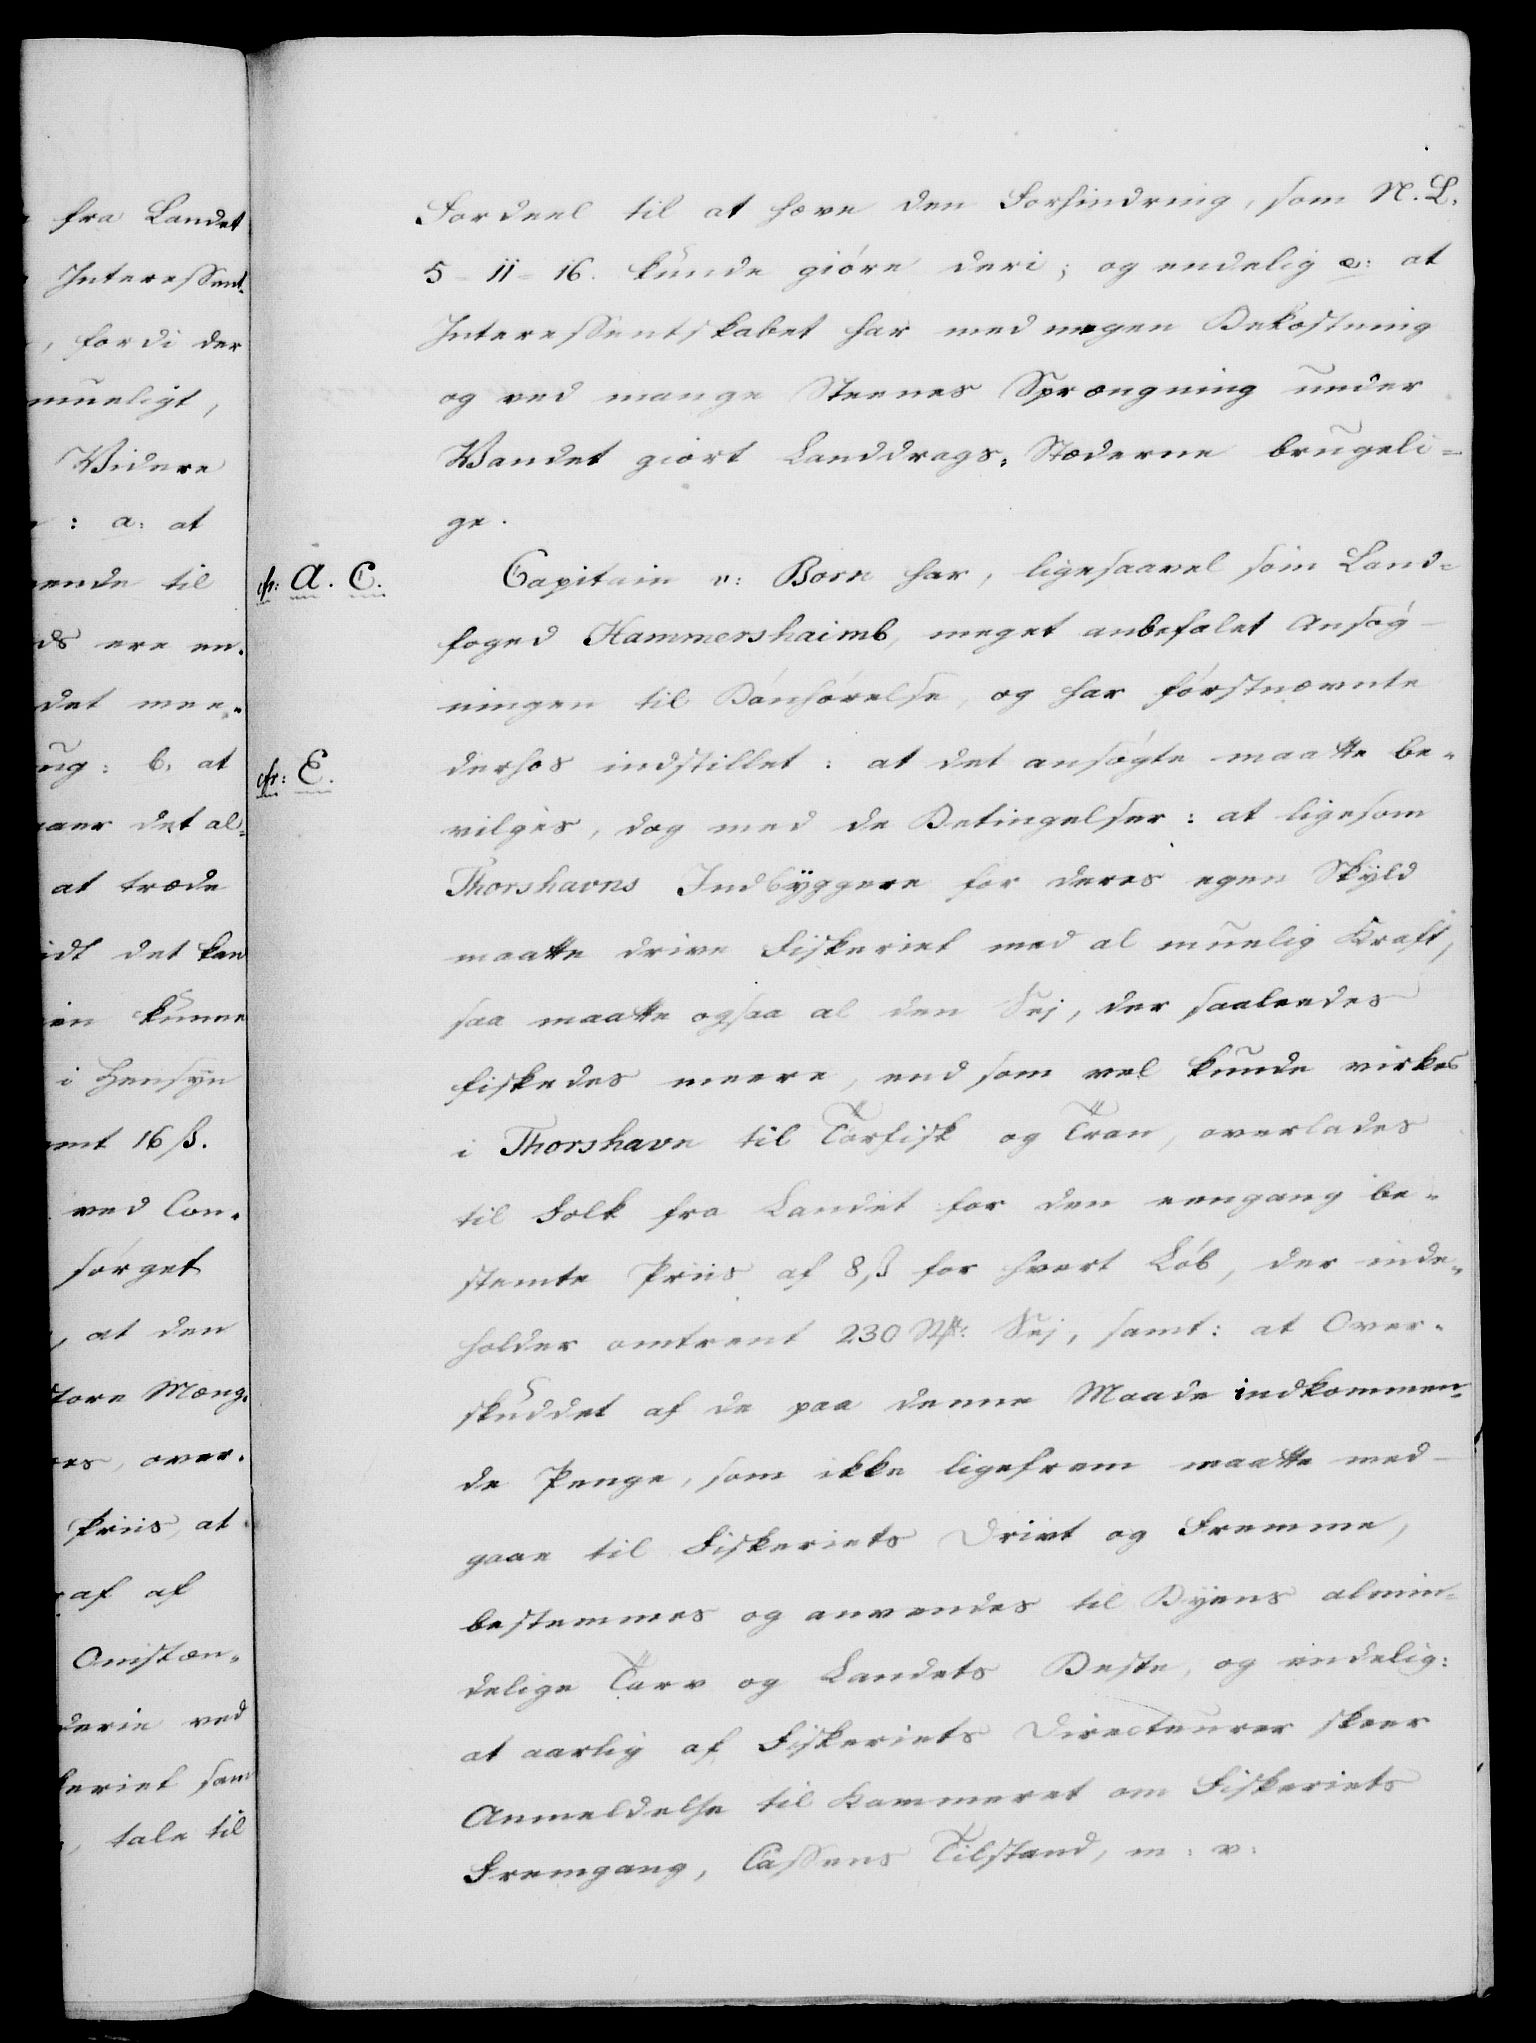 fra Landet
Interessent-
, fordi der
mueligt,
Videre
: a: at
ende til
ds ere en-
det mee-
ug: b. at
aaer det al-
at træde
idt det kan
en kunne
i Hensyn
mt 16 ß.
ved Con-
sørget
, at den
store Mæng-
es, over-
Priis, at
af af
Omstæn-
derie ved
keriet sam
, tale til
Fordeel til at hæve den Forhindring, som N. L.
5-11-16. kunde giöre deri; og endelig e: at
Interessentskabet har med megen Bekostning
og ved mange Steenes Sprængning under
Vandet giort Landdrags-Stæderne brugeli-
ge.
cfr: A. C.
Capitain v: Born har, ligesaavel som Land-
foged Hammershaimb, meget anbefalet Ansøg-
ningen til Bönhörelse, og har förstnævnte
cfr: E.
derhos indstillet: at det ansøgte maatte be-
vilges, dog med de Betingelser: at ligesom
Thorshavns Indbÿggere for deres egen Skÿld
maatte drive Fiskeriet med al muelig Kraft,
saa maatte ogsaa al den Sej, der saaledes
fiskedes meere, end som vel kunde virkes
i Thorshavn til Törfisk og Tran, overlades
til Folk fra Landet for den eengang be-
stemte Priis af 8 ß for hvert Löb, der inde-
holder omtrent 230 Stk: Sej, samt: at Over-
skuddet af de paa denne Maade indkommen-
de Penge, som ikke ligefrem maatte med-
gaae til Fiskeriets Drivt og Fremme,
bestemmes og anvendes til Byens almin-
delige Tarv og Landets Beste, og endelig:
at aarlig af Fiskeriets Directeurer skeer
Anmeldelse til Kammeret om Fiskeriets
Fremgang, Cassens Tilstand, m: v: